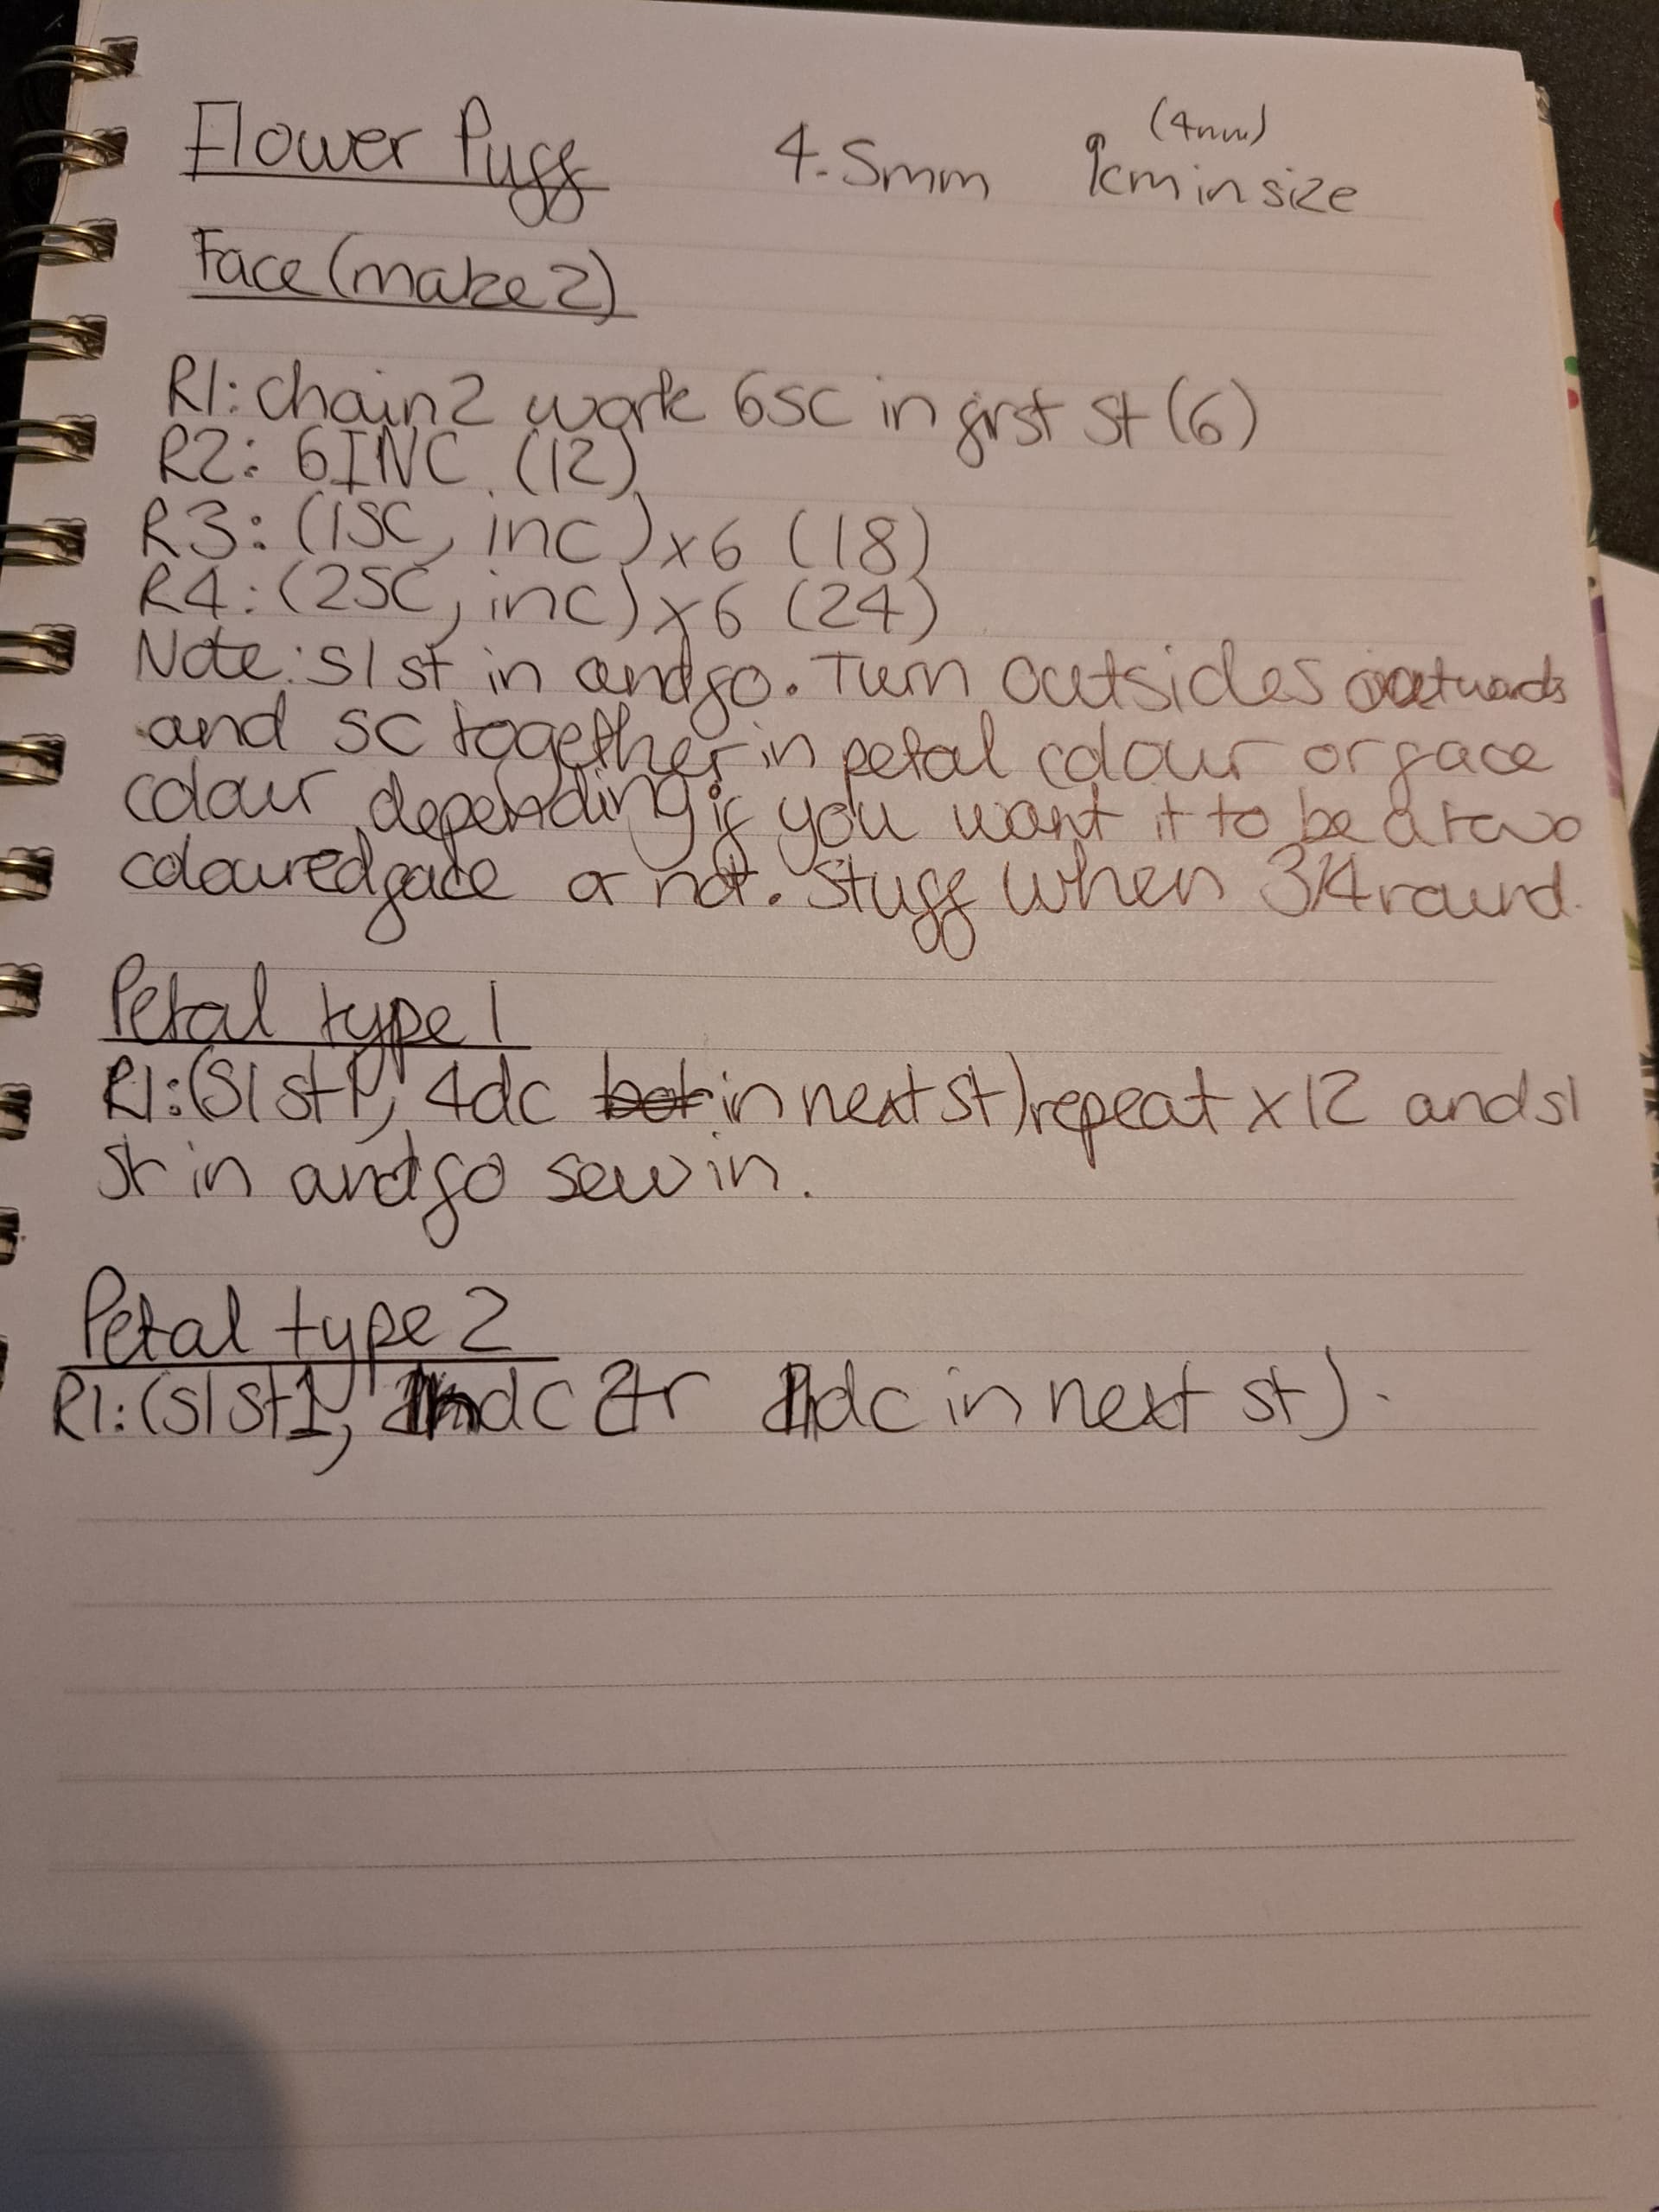 Flower Puff 4.5mm 9cm in size (4mm)
Face (make 2)
R1: chain 2 work 6sc in first st (6)
R2: 6INC (12)
R3: (1sc, inc) x6 (18)
R4: (2sc, inc) x6 (24)
Note: sl st in and fo. Turn outsides outwards
and sc together in petal colour or face
colour depending if you want it to be a two
coloured face or not. Stuff when 3/4 round.
Petal type 1
R1: (sl st 1, 4dc in next st) repeat x12 and sl
st in and fo sew in.
Petal type 2
R1: (sl st 1, dc 2tr dc in next st).